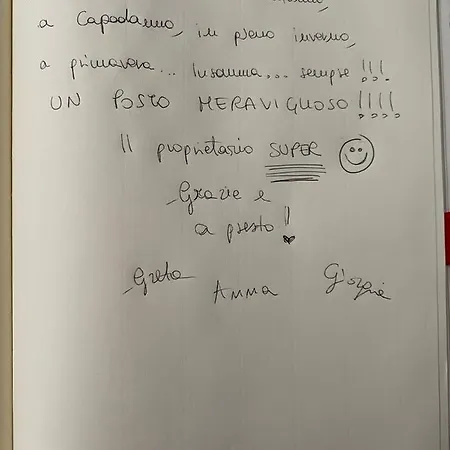 a Capodanno, in pieno inverno,
a primavera... Insomma... sempre!!!
UN POSTO MERAVIGLIOSO!!!!
Il proprietario SUPER
Grazie e
a presto!
Greta Anna Giorgia